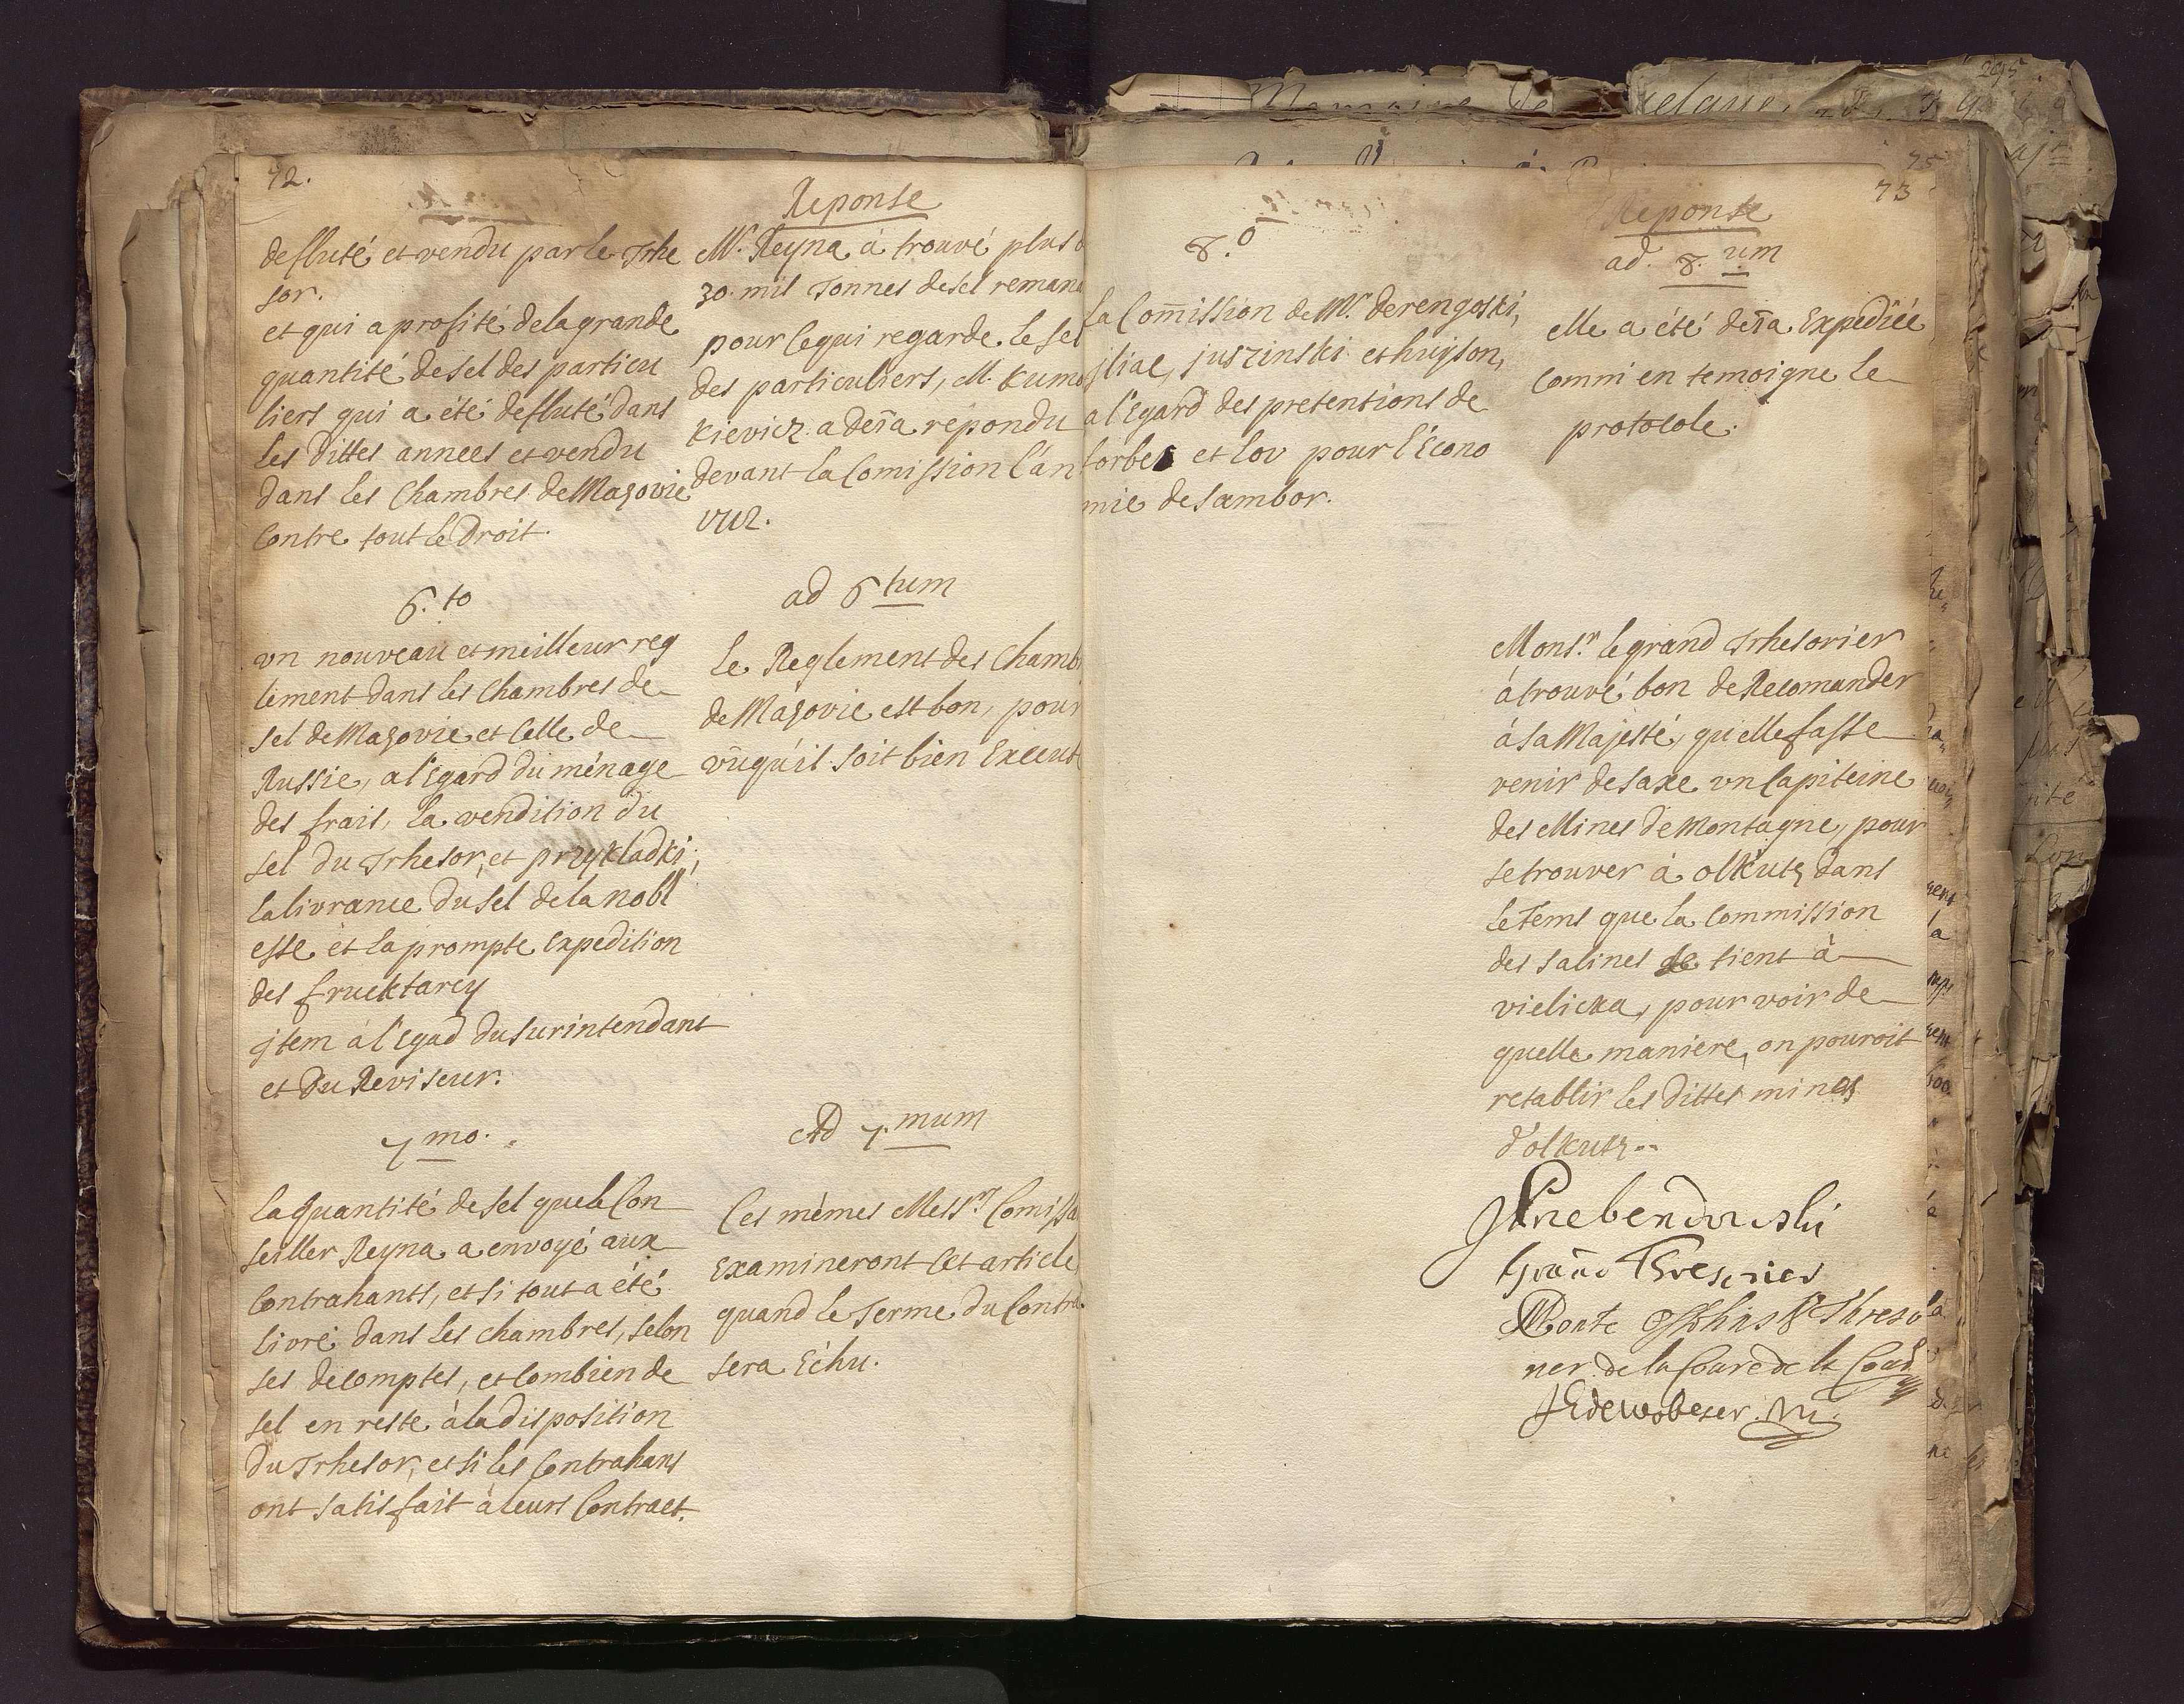 72.
defluté et vendu par le Trhe
sor.
et qui a profité de la grande
quantité de sel des particu
liers qui a été defluté dans
les dittes annees et vendu
dans les Chambres de Masovie
Contre tout le Droit.
6.to
vn nouveau et meilleur reg
lement dans les Chambres de
sel de Masovie et Celle de
Russie, a l'Egard du ménage
des frais, la vendition du
sel du Trhesor, et przykladki,
la livrance du sel de la nobl
esse et la prompte Expedition
des fruktarcy
jtem à l'Egad du surintendant
et du Reviseur.
7mo.
la quantité de sel que le Con
seiller Reyna a envoyé aux
Contrahants, et si tout a été
livré dans les chambres, selon
ses decomptes, et Combien de
sel en reste à la disposition
du Trhesor, et si les Contrahans
ont satisfait à leurs Contract.
Reponse
Mr. Reyna à trouvé plus
30. mil Tonnes de sel reman
pour ce qui regarde le sel
des particuliers, M. Kumo
kievicz a deja repondu
devant la Comission l'an
1712.
ad 6tum
le Reglement des Chamb
de Masovie est bon, pour
vûqu'il soit bien Execut
Ad 7.mum
Ces mêmes Messrs Comissa
Examineront Cet article
quand le Terme du Contra
sera Echu.
75
73
8.o
la Comission de Mr. Derengoski,
jliae, juszinski et huyson,
a l'Egard des pretentions de
forbes et lov pour l'Econo
mie de Sambor.
Reponse
ad. 8.um
elle a été deja Expediée
Comm' en temoigne le
protocole.
Monsr. le grand Trhesorier
à trouvé bon de Recomander
à sa Majesté, qu'elle fasse
venir de Saxe vn Capiteine
des Mines de Montagne, pour
se trouver à olkutz dans
le Tems que la Commission
des salines se tient à
vielicka, pour voir de
quelle maniere, on pouroit
retablir les dittes mines
d'olkutz..
JPrebendowski
Grand Thresorier
Threso
rier de la Cour de la
JEdeWobeser. m